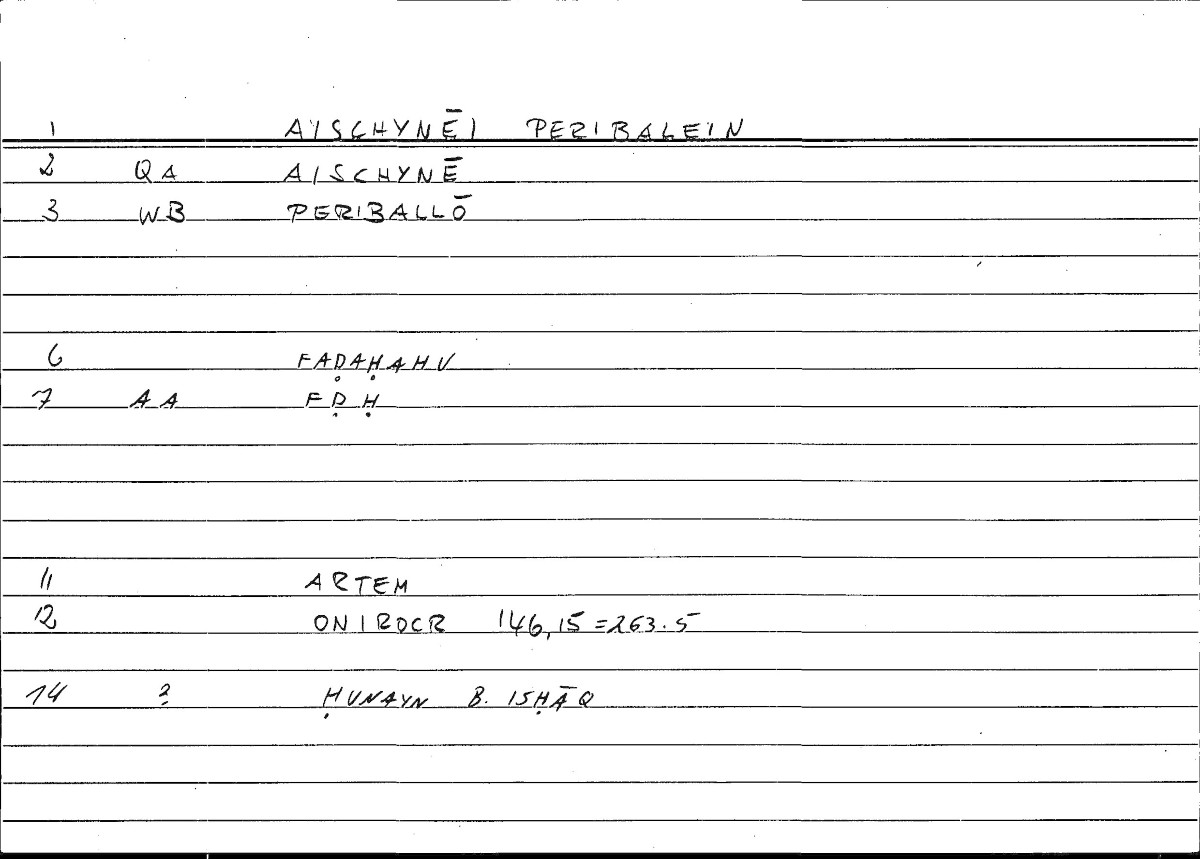 1 AISCHYNĒI PERIBALEIN
2 QA AISCHYNĒ
3 WB PERIBALLŌ
6 FAḌAḤAHU
7 AA FḌḤ
11 ARTEM
12 ONIROCR 146,15=263.5
14 ? ḤUNAYN B. ISḤĀQ